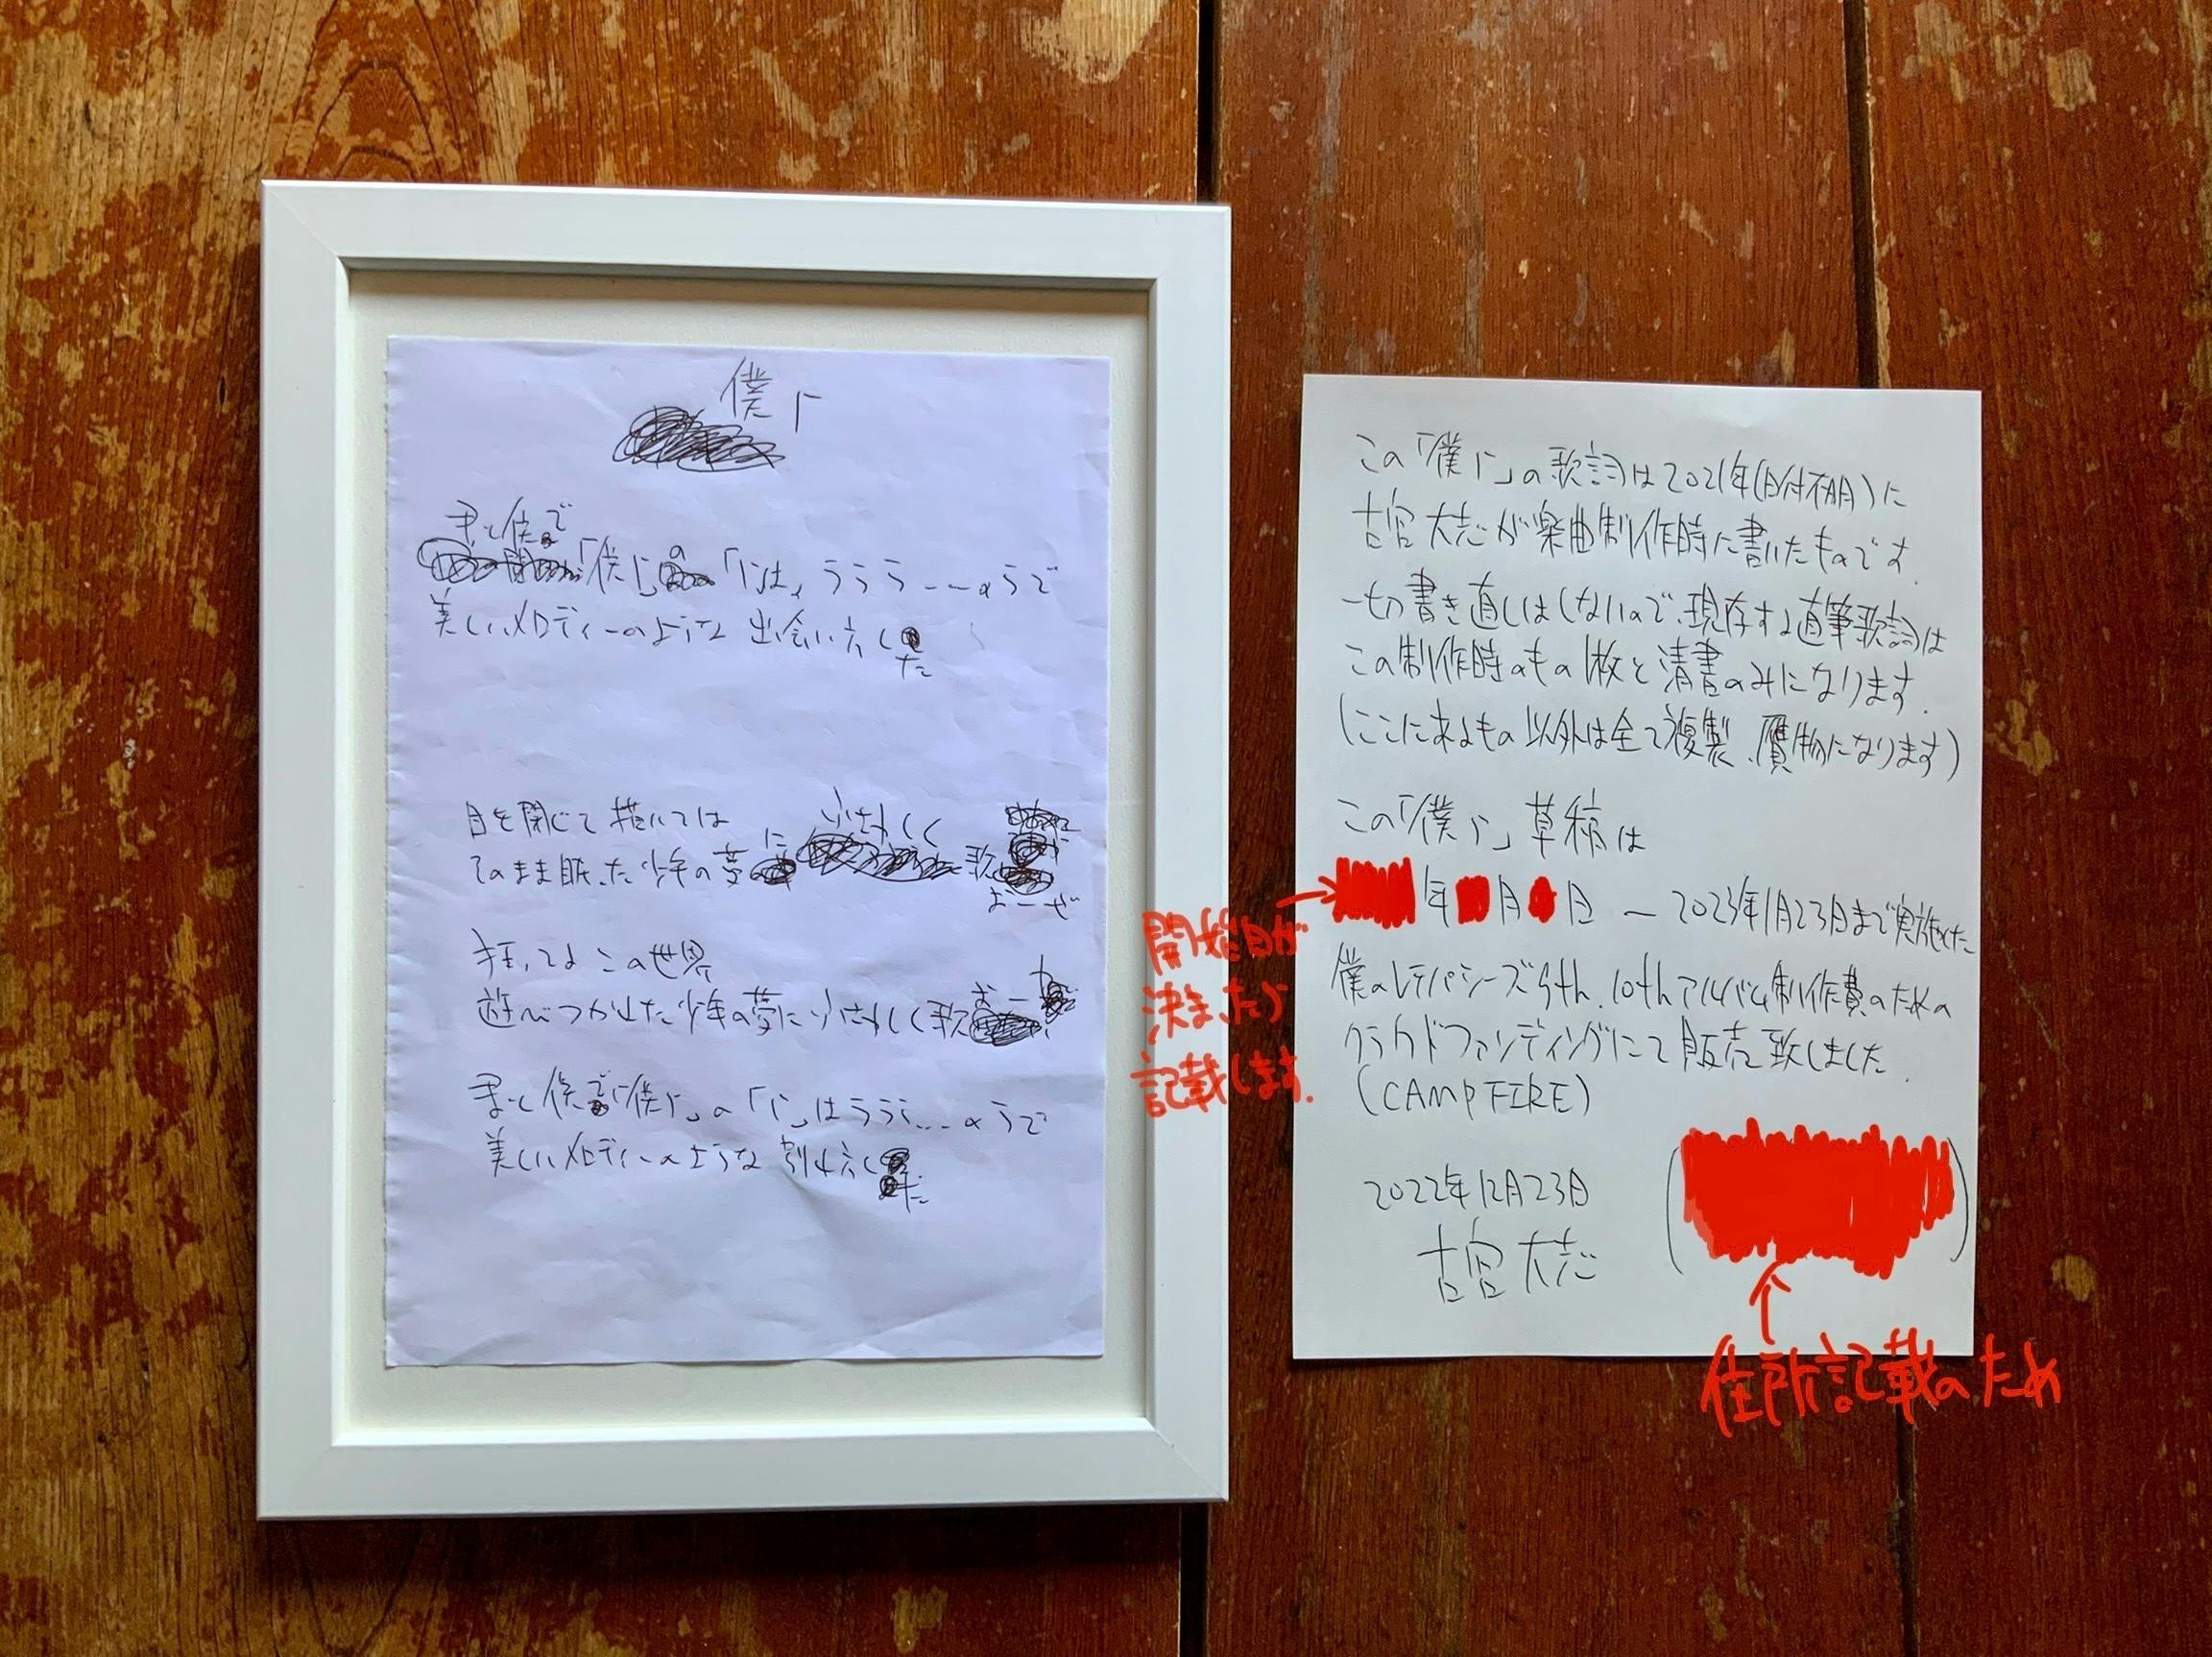 僕ら
君と僕で
「僕ら」の「ら」は、ららら...のらで
美しいメロディーのような出会いでした
目を閉じて描いては
そのまま眠った少年の夢にふさわしく歌おーぜ
狂ってるこの世界
遊びつかれた少年の夢にふさわしく歌おー
君と僕で「僕ら」の「ら」はららら...のらで
美しいメロディーのような別れでした
この「僕ら」の歌詞は2021年(日付不明)に
古宮大志が楽曲制作時に書いたものです.
一切書き直しはしないので、現存する直筆歌詞は
この制作時のもの1枚と清書のみになります.
(ここにあるもの以外は全て複製、贋物になります)
この「僕ら」草稿は
年 月 日 ー 2023年1月23日まで実施した
僕のレテパシーズ9th.10thアルバム制作費のための
クラウドファンディングにて販売致しました.
(CAMPFIRE)
2022年12月23日
古宮大志
開始日が
決まったら
記載します.
住所記載のため